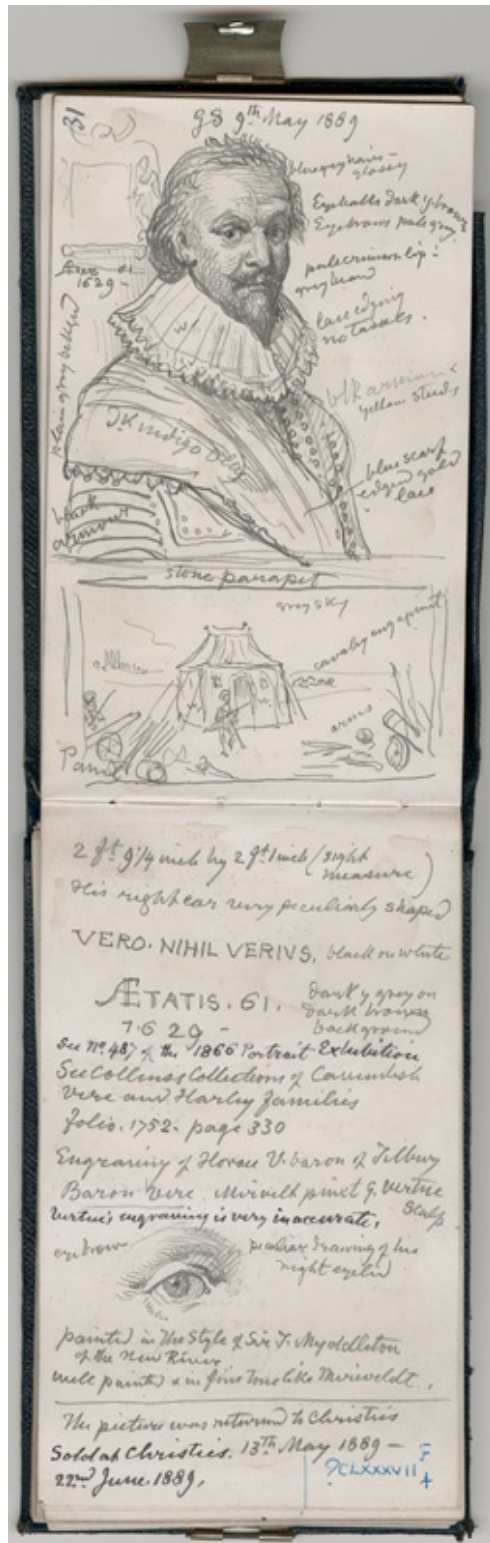 31
GS 9th May 1889
blue grey hairs -
glossy
Eyeballs dark y brown
Eyebrows pale gray
pale crimson lip!
grey beard
Anno
1629 -
lace edging
no tassels.
W
yellow studs
Dk indigo
blue scarf
edged gold
lace
black
armour
stone parapet
grey sky
cavalry engagement
arms
Panel
2 ft 9 1/4 inch by 2 ft 1 inch (sight
measure)
His right ear very peculiarly shaped
VERO. NIHIL VERIVS, black on white
ÆTATIS. 61.
1629 -
dark y grey on
dark brown
background
See No. 487 of the 1866 Portrait Exhibition
See Collins's Collections of Cavendish
Vere and Harley families
folio. 1752. page 330
Engraving of Horace V. baron of Tilbury
Baron Vere. Mirevelt pinxt G. Vertue
Sculp
Vertue's engraving is very inaccurate.
eyebrow
peculiar drawing of his
right eyelid
painted in the Style of Sir T. Myddleton
of the New River
well painted & in fine tone like Mireveldt.
The picture was returned to Christies
Sold at Christies. 13th May 1889 -
22nd June. 1889.
?CLXXXVII F
4